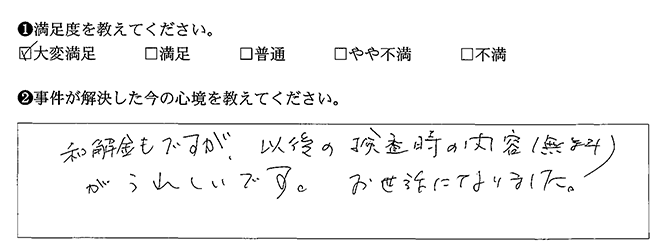 ❶満足度を教えてください。
☑大変満足 □満足 □普通 □やや不満 □不満
❷事件が解決した今の心境を教えてください。
和解金もですが、以後の検査時の内容(無よみ)
がうれしいです。お世話になりました。